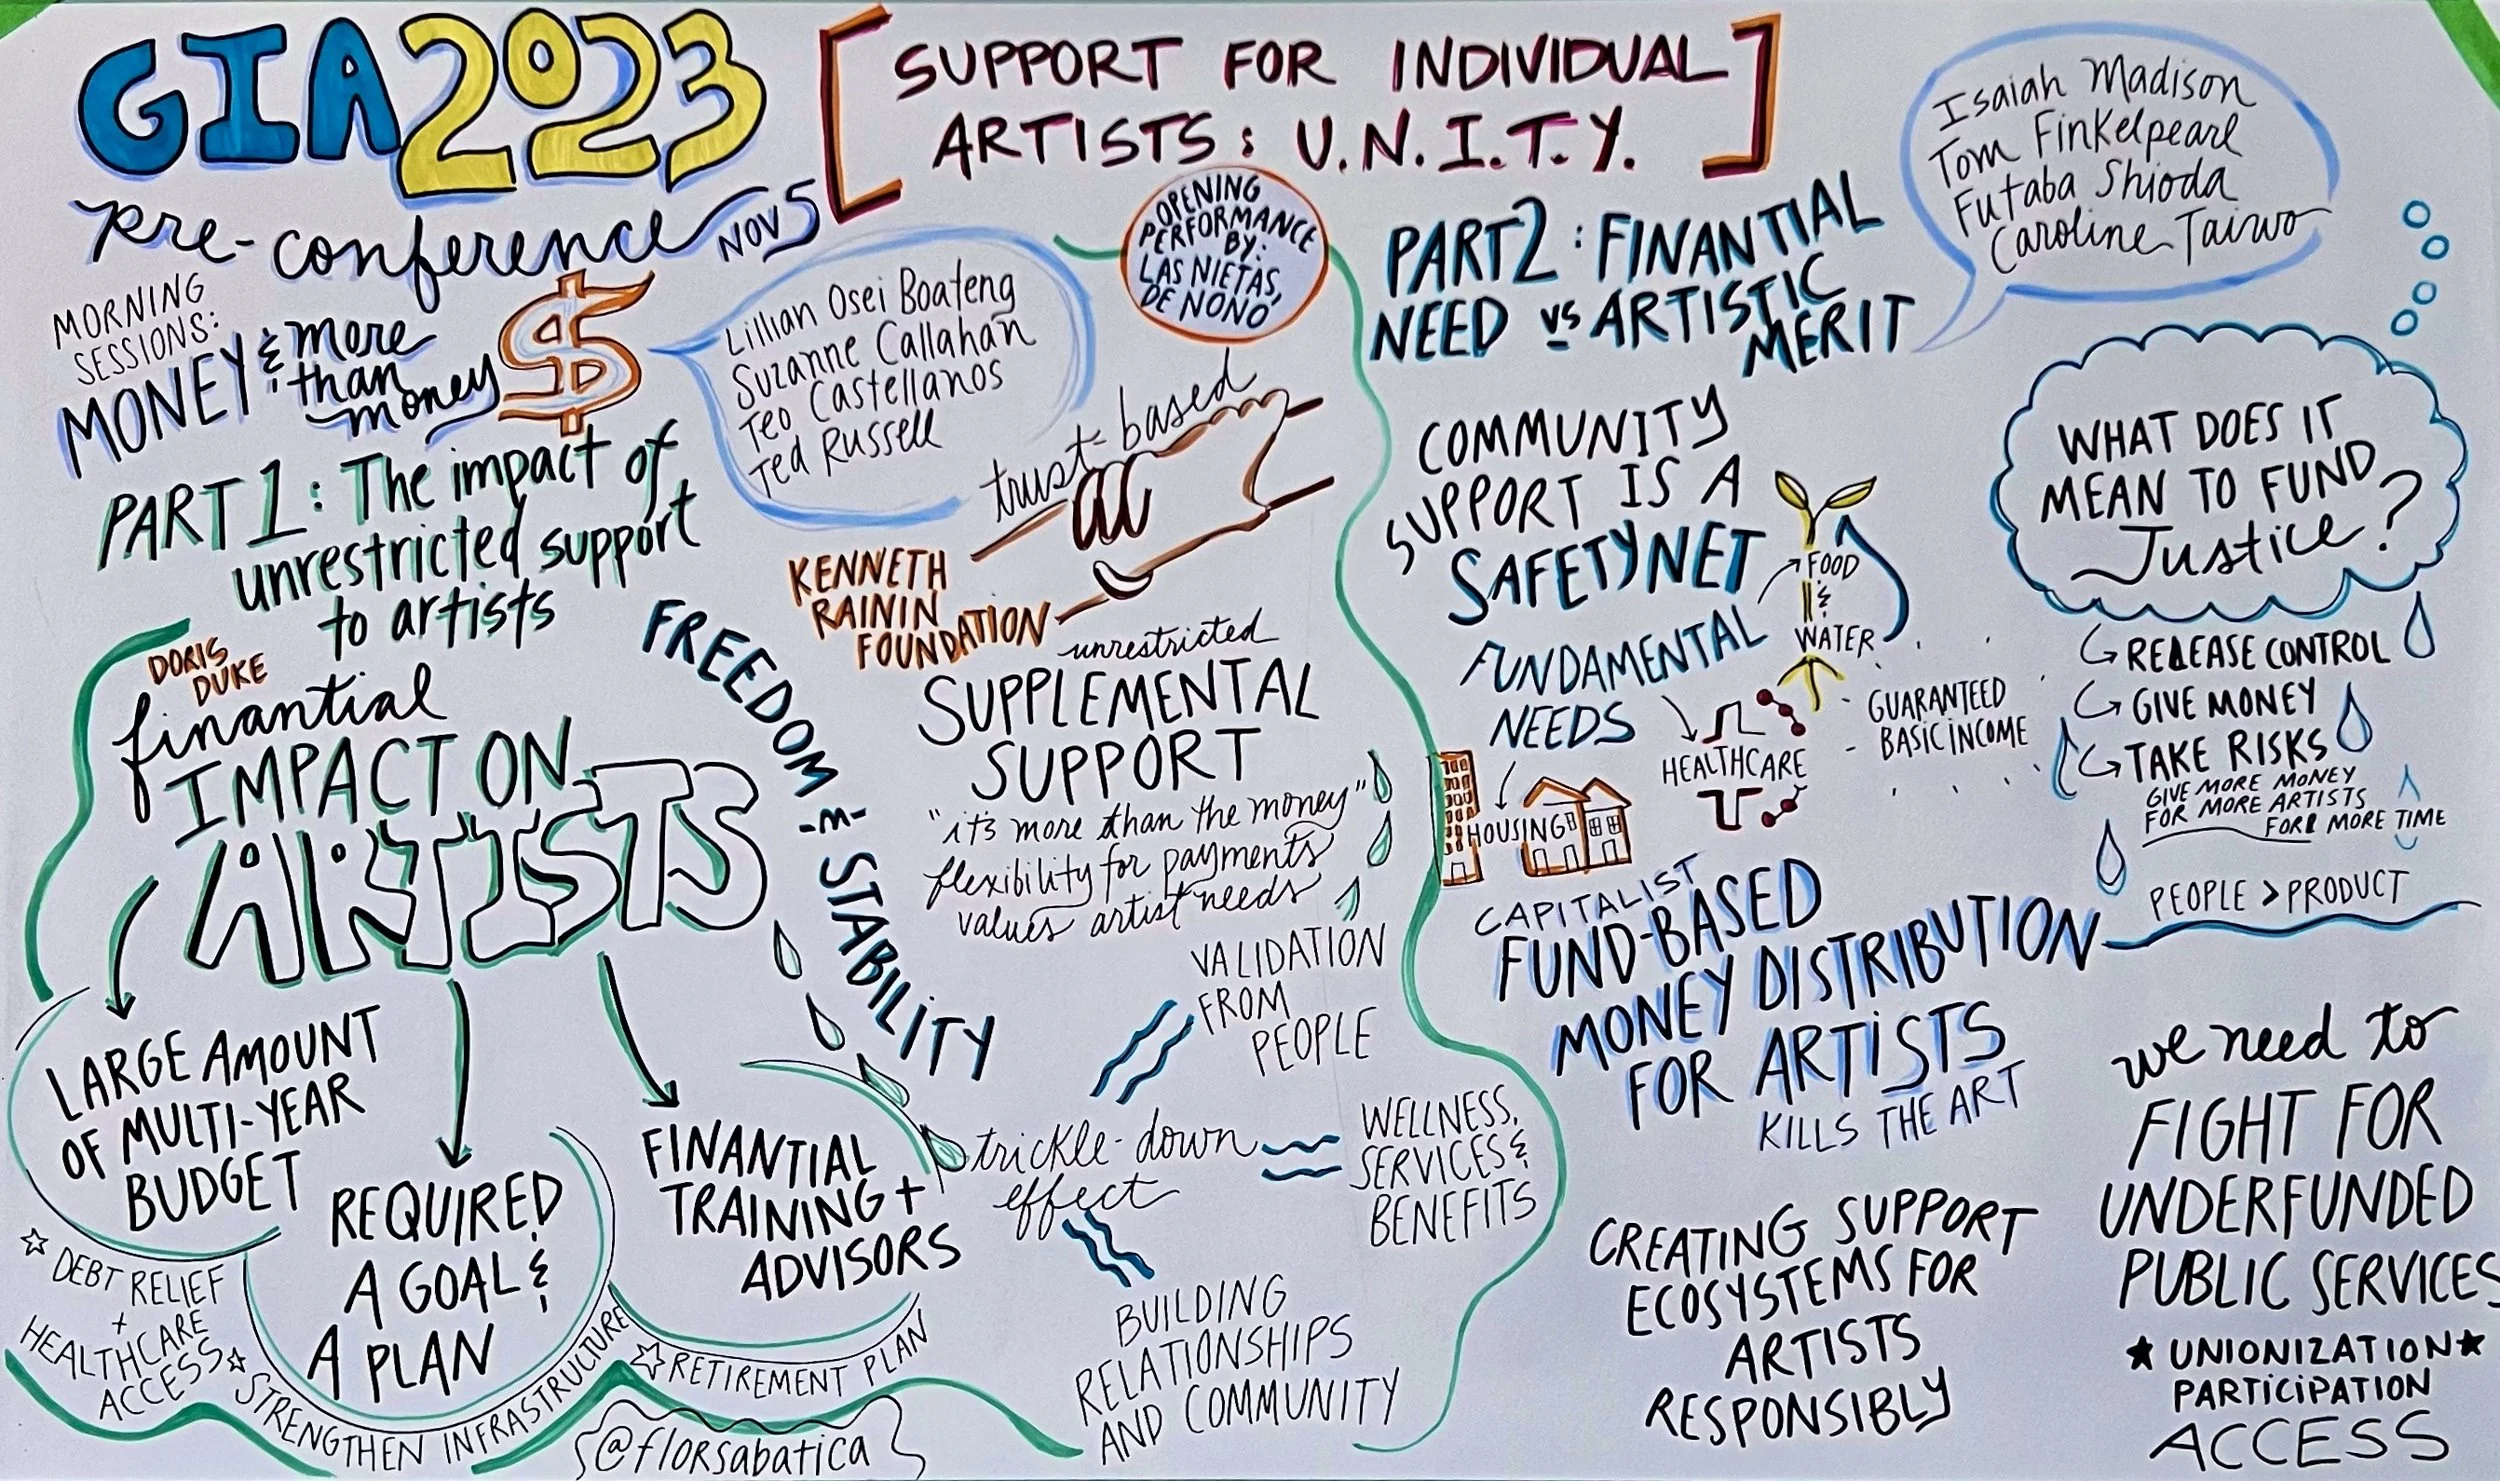 GIA 2023
Pre-conference NOV 5
[SUPPORT FOR INDIVIDUAL
ARTISTS: U.N.I.T.Y.]
OPENING
PERFORMANCE
BY:
LAS NIETAS,
DE NONO
MORNING
SESSIONS:
MONEY & more
than
money
$
Lillian Osei Boateng
Suzanne Callahan
Teo Castellanos
Ted Russell
PART 1: The impact of
unrestricted support
to artists
DORIS
DUKE
finantial
IMPACT ON
ARTISTS
LARGE AMOUNT
OF MULTI-YEAR
BUDGET
REQUIRED
A GOAL &
A PLAN
FINANTIAL
TRAINING +
ADVISORS
DEBT RELIEF
+
HEALTHCARE
ACCESS
STRENGTHEN INFRASTRUCTURE
RETIREMENT PLAN
@florsabatica
FREEDOM & STABILITY
trust-based
KENNETH
RAININ
FOUNDATION
unrestricted
SUPPLEMENTAL
SUPPORT
"it's more than the money"
flexibility for payments
values artist needs
VALIDATION
FROM
PEOPLE
trickle-down
effect
WELLNESS,
SERVICES &
BENEFITS
BUILDING
RELATIONSHIPS
AND COMMUNITY
PART 2: FINANTIAL
NEED vs ARTISTIC
MERIT
Isaiah Madison
Tom Finkelpearl
Futaba Shioda
Caroline Taiwo
COMMUNITY
SUPPORT IS A
SAFETYNET
FUNDAMENTAL
NEEDS
FOOD
&
WATER
HEALTHCARE
HOUSING
GUARANTEED
BASIC INCOME
CAPITALIST
FUND-BASED
MONEY DISTRIBUTION
FOR ARTISTS
KILLS THE ART
CREATING SUPPORT
ECOSYSTEMS FOR
ARTISTS
RESPONSIBLY
WHAT DOES IT
MEAN TO FUND
Justice?
RELEASE CONTROL
GIVE MONEY
TAKE RISKS
GIVE MORE MONEY
FOR MORE ARTISTS
FOR MORE TIME
PEOPLE > PRODUCT
we need to
FIGHT FOR
UNDERFUNDED
PUBLIC SERVICES
★ UNIONIZATION ★
PARTICIPATION
ACCESS